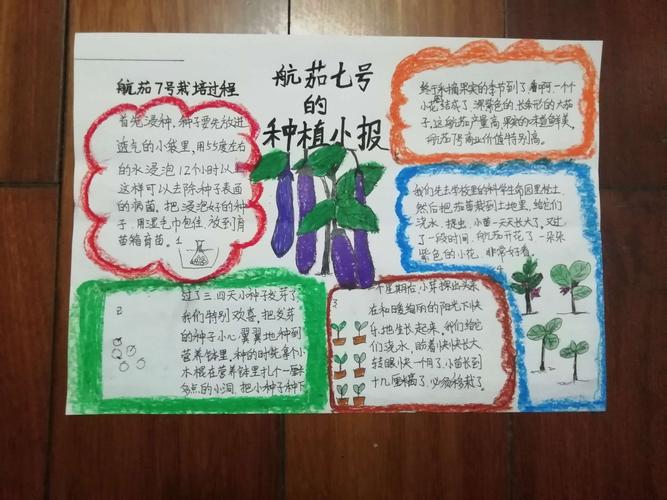 航茄7号栽培过程
航茄七号
的
种植小报
首先浸种,种子要先放进
透气的小袋里,用55度左右
的水浸泡12个小时以上
这样可以去除种子表面
的病菌。把浸泡好的种
子,用湿毛巾包住,放到育
苗箱育苗。1
2
过了三四天小种子发芽了
我们特别欢喜。把发芽
的种子小心翼翼地种到
营养钵里,种的时候拿个小
木棍在营养钵里扎个一厘米
多点的小洞,把小种子种下
3
个星期后,小芽探出头来
在和暖绚丽的阳光下快
乐地生长起来。我们给它
们浇水,盼着快快长大,
转眼快一个月了,小苗长到
十几厘米高了,必须移栽了
我们先去学校里的科学生命园里挖土,
然后把茄苗栽到土地里,给它们
浇水,捉虫,小苗一天天长大了。又过
了一段时间,航茄开花了一朵朵
紫色的小花,非常好看。
4
终于采摘果实的季节到了,看啊,一个个
小花结成了深紫色的、长条形的大茄
子。这航茄产量高,果实的味道鲜美,
航茄7号商业价值特别高。